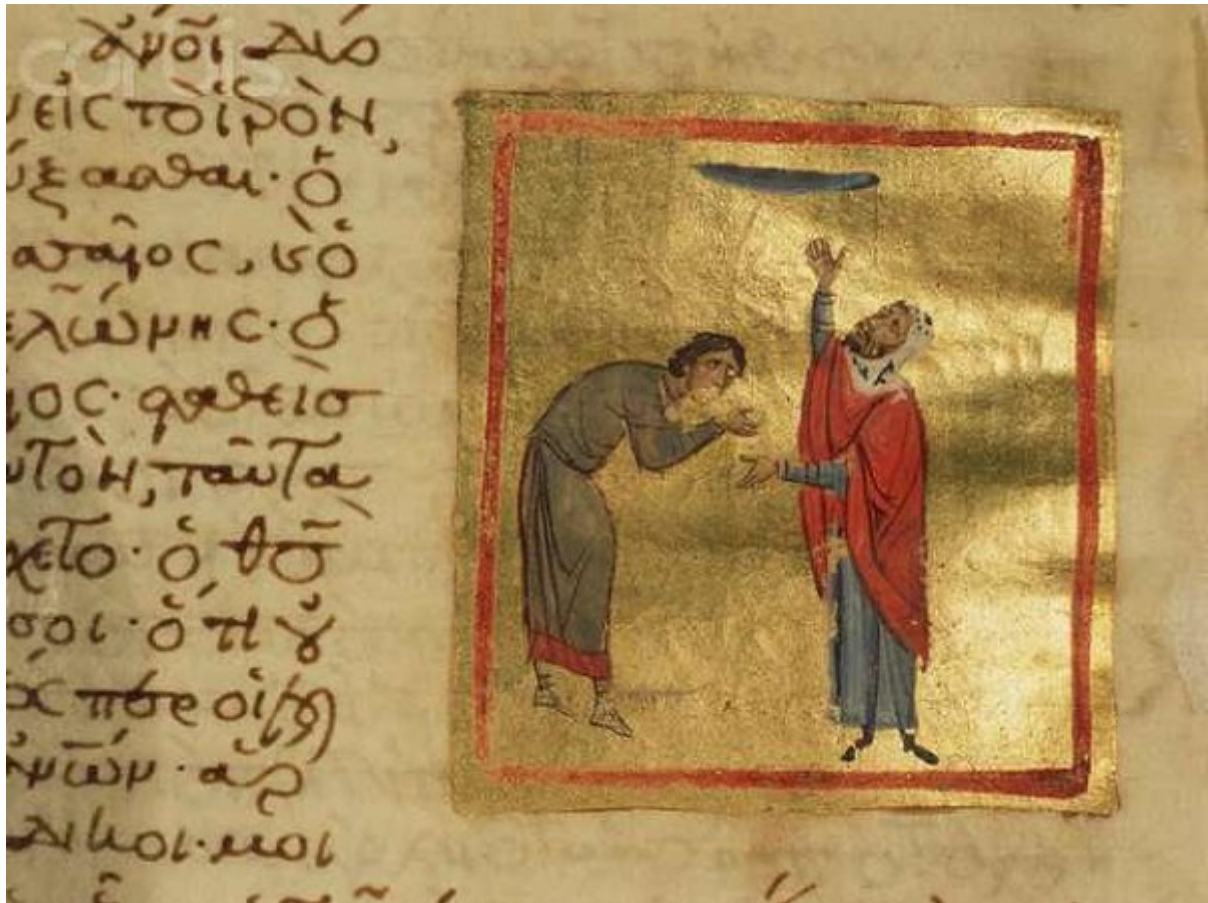 ἄνοι δύο
εἰς τὸ ἱρὸν,
ύξασθαι· ὁ
σαῖος, κὁ
ελώνης· ὁ
ῖος· σταθεὶσ
υτὸν, ταῦτα
χετο· ὁ θσ
σοι· ὅτι οὐ
περ οἱ
ἄνων· ἅρ
δικοι· μοι